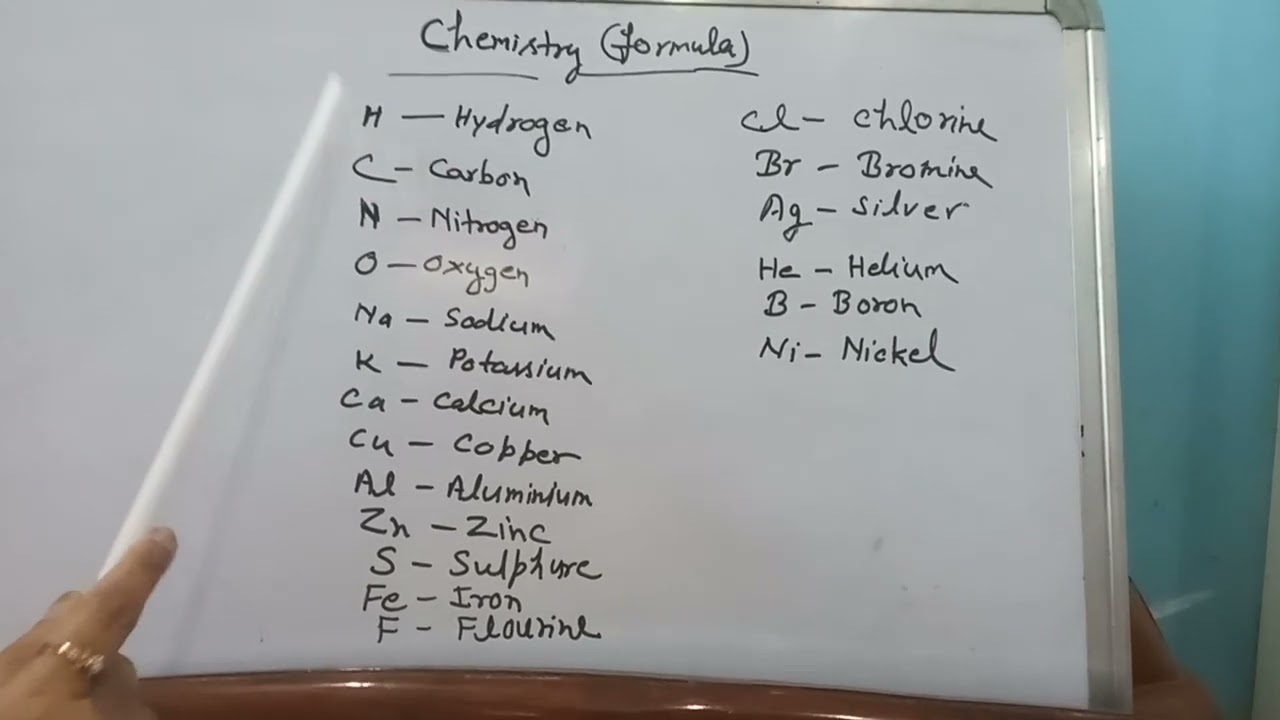 Chemistry (formula)
H — Hydrogen
C - Carbon
N - Nitrogen
O - Oxygen
Na - Sodium
K - Potassium
Ca - Calcium
Cu - Copper
Al - Aluminium
Zn - Zinc
S - Sulphure
Fe - Iron
F - Flourine
Cl - Chlorine
Br - Bromine
Ag - Silver
He - Helium
B - Boron
Ni - Nickel